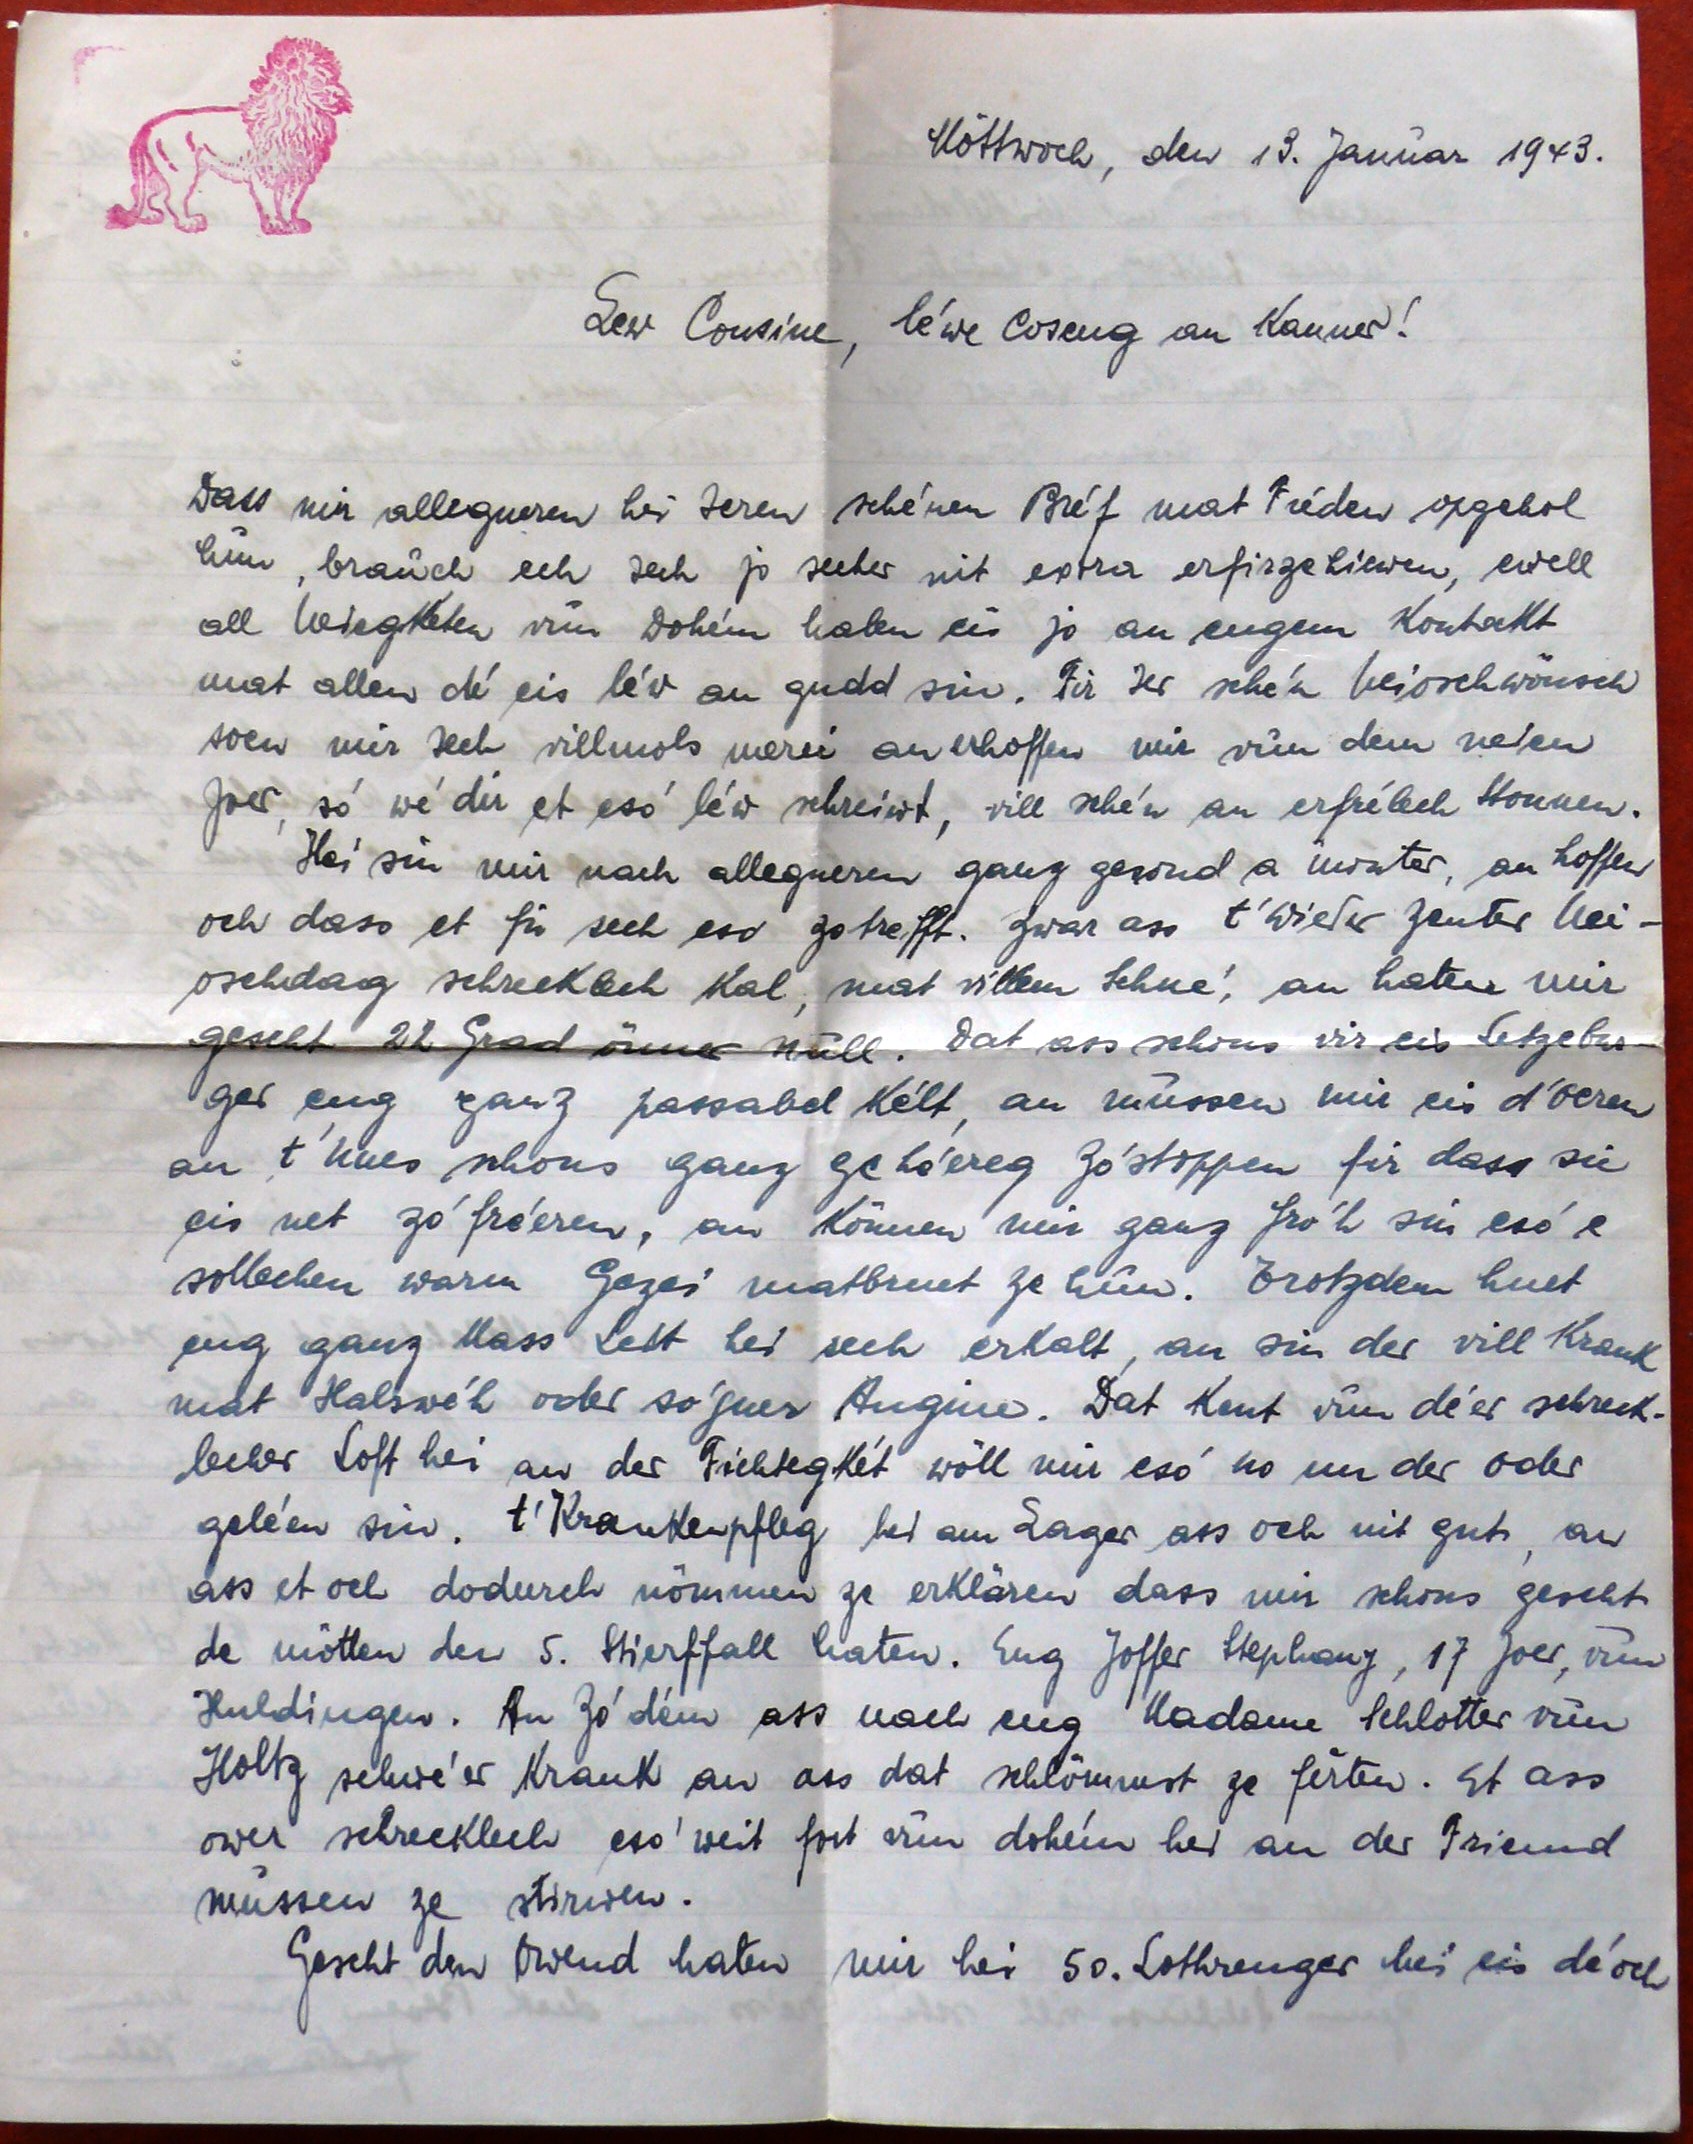 Möttwoch, den 13. Januar 1943.
Lew Cousine, lé'we Coseng an Kanner!
Dass mir allegueren hei Ieren sché'nen Bréf mat Fréden opgehol
hûn, brauch ech Iech jo secher nit extra erfirzehiewen, ewell
all Neiegketen vûn Dohém halen eis jo an engem Kontakt
mat allen dé' eis lé'w an gudd sin. Fir Ier sché'n Neioschwönsch
soen mir Iech villmols merci an erhoffen mir vûn dem neien
Joer, só wé' dir et esó' lé'w schreiwt, vill sché'n an erfrélech Stonnen.
Hei sin mir nach allegueren ganz gesond a monter, an hoffen
och dass et fir iech eso zotrefft. Zwar ass t'Wieder zenter Nei-
oschdag schrecklech kal, mat villem Schné', an haten mir
gescht 22 Grad önner Null. Dat ass schons vir eis Letzebur-
ger eng ganz passabel Kélt, an mussen mir eis d'Oeren
an t'Nues schons ganz gehó'ereg zó'stoppen fir dass sie
eis net zó'fré'eren, an können mir ganz fró'h sin esó' e
sollechen warm Gezei matbruet ze hûn. Trotzdem huet
eng ganz Mass Leit hei sech erkalt, an sin der vill Krank
mat Halswé'h oder só'guer Angine. Dat kent vûn dé'er schreck-
lecher Loft hei an der Fiichtegkét wöll mir esó' no un der Oder
gelé'en sin. t'Krankenpfleg hei am Lager ass och nit gut, an
ass et och dodurch nömmen ze erklären dass mir schons gescht
de mötten den 5. Stierffall haten. Eng Joffer Stephany, 17 Joer, vûn
Huldingen. An zó'dém ass nach eng Madame Schlotter vûn
Holtz schwé'er krank an ass dat schlömmst ze fërten. Et ass
ower schrecklech esó' weit fort vûn dohém hei an der Friemd
mussen ze stirwen.
Gescht den Owend haten mir hei 50. Lothrenger hei eis dé' och